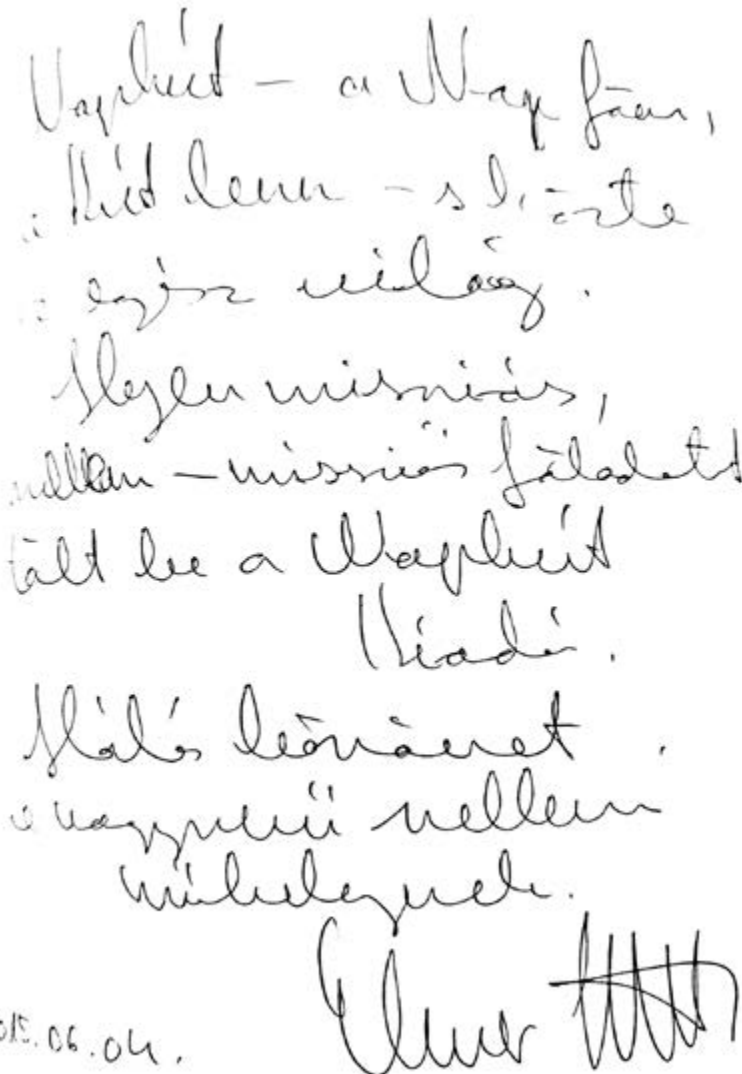 Napkút – a Nap fönn,
a Kút lenn – s közte
az egész világ.
Ilyen missziós,
szellem – missziós feladatot
tölt be a Napkút
Kiadó.
Hálás köszönet
e nagyszerű szellemi
műhelynek.
2015.06.04.